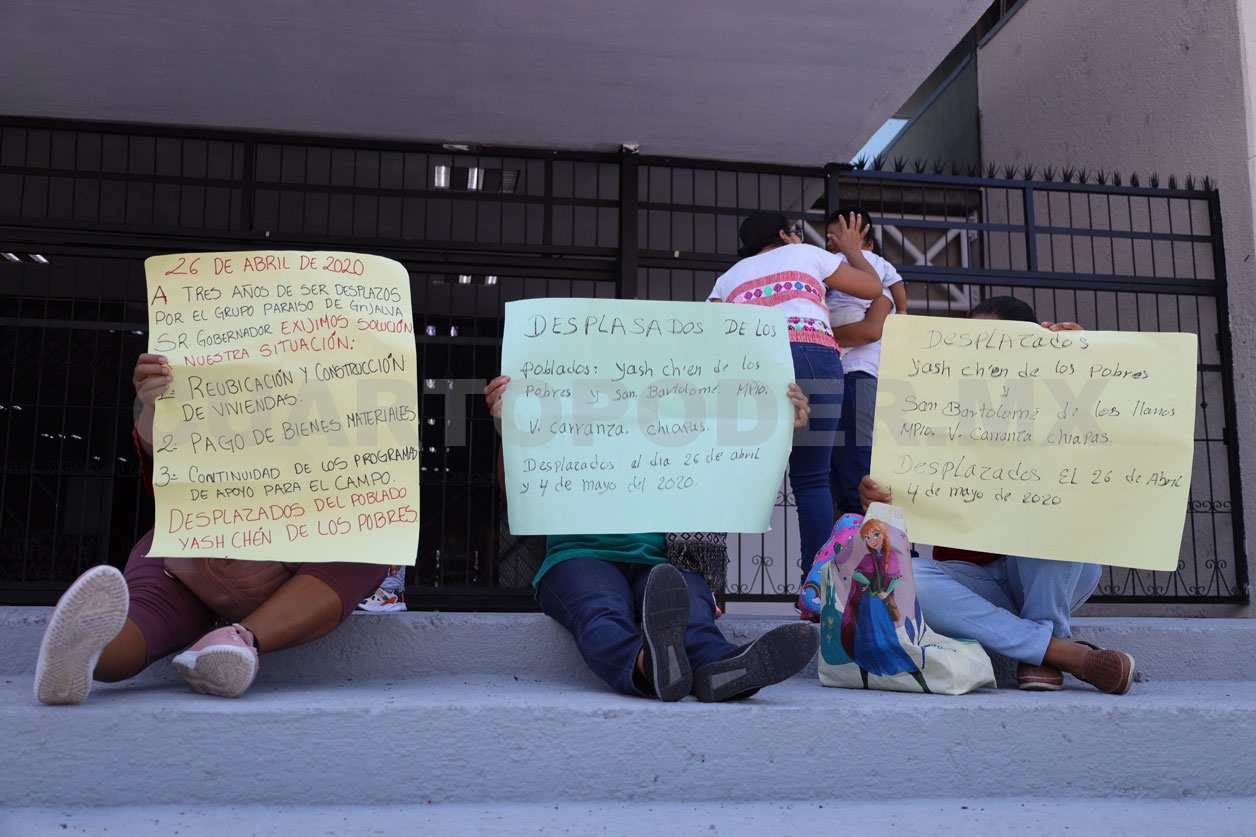 26 DE ABRIL DE 2020
A TRES AÑOS DE SER DESPLAZOS
POR EL GRUPO PARAISO DE GRIJALVA
SR GOBERNADOR EXIJIMOS SOLUCIÓN
NUESTRA SITUACIÓN:
1- REUBICACIÓN Y CONSTRUCCIÓN
DE VIVIENDAS.
2- PAGO DE BIENES MATERIALES
3- CONTINUIDAD DE LOS PROGRAMAS
DE APOYO PARA EL CAMPO.
DESPLAZADOS DEL POBLADO
YASH CHÉN DE LOS POBRES.
DESPLASADOS DE LOS
Poblados: yash ch'en de los
Pobres y San. Bartolomé. MPIO.
V. CARRANZA. CHIAPAS.
Desplazados el dia 26 de abril
y 4 de mayo del 2020.
Desplazados
yash ch'en de los Pobres
y
San Bartolomé de los llanos
MPIO. V. Carranza chiapas.
Desplazados EL 26 de Abril
y 4 de mayo de 2020
CUARTOPODER.MX